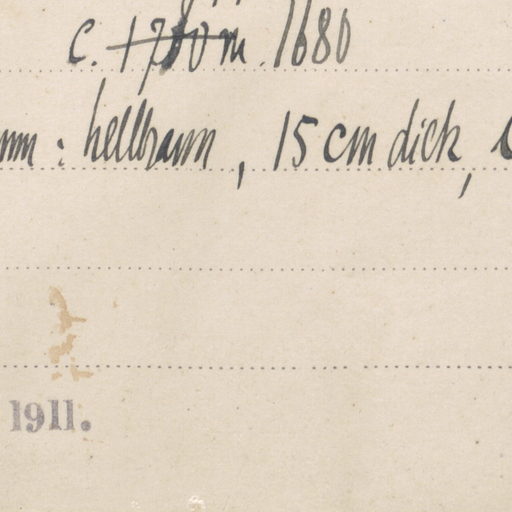 c. 1780 m. 1680
mm : hellbraun, 15 cm dick,
1911.